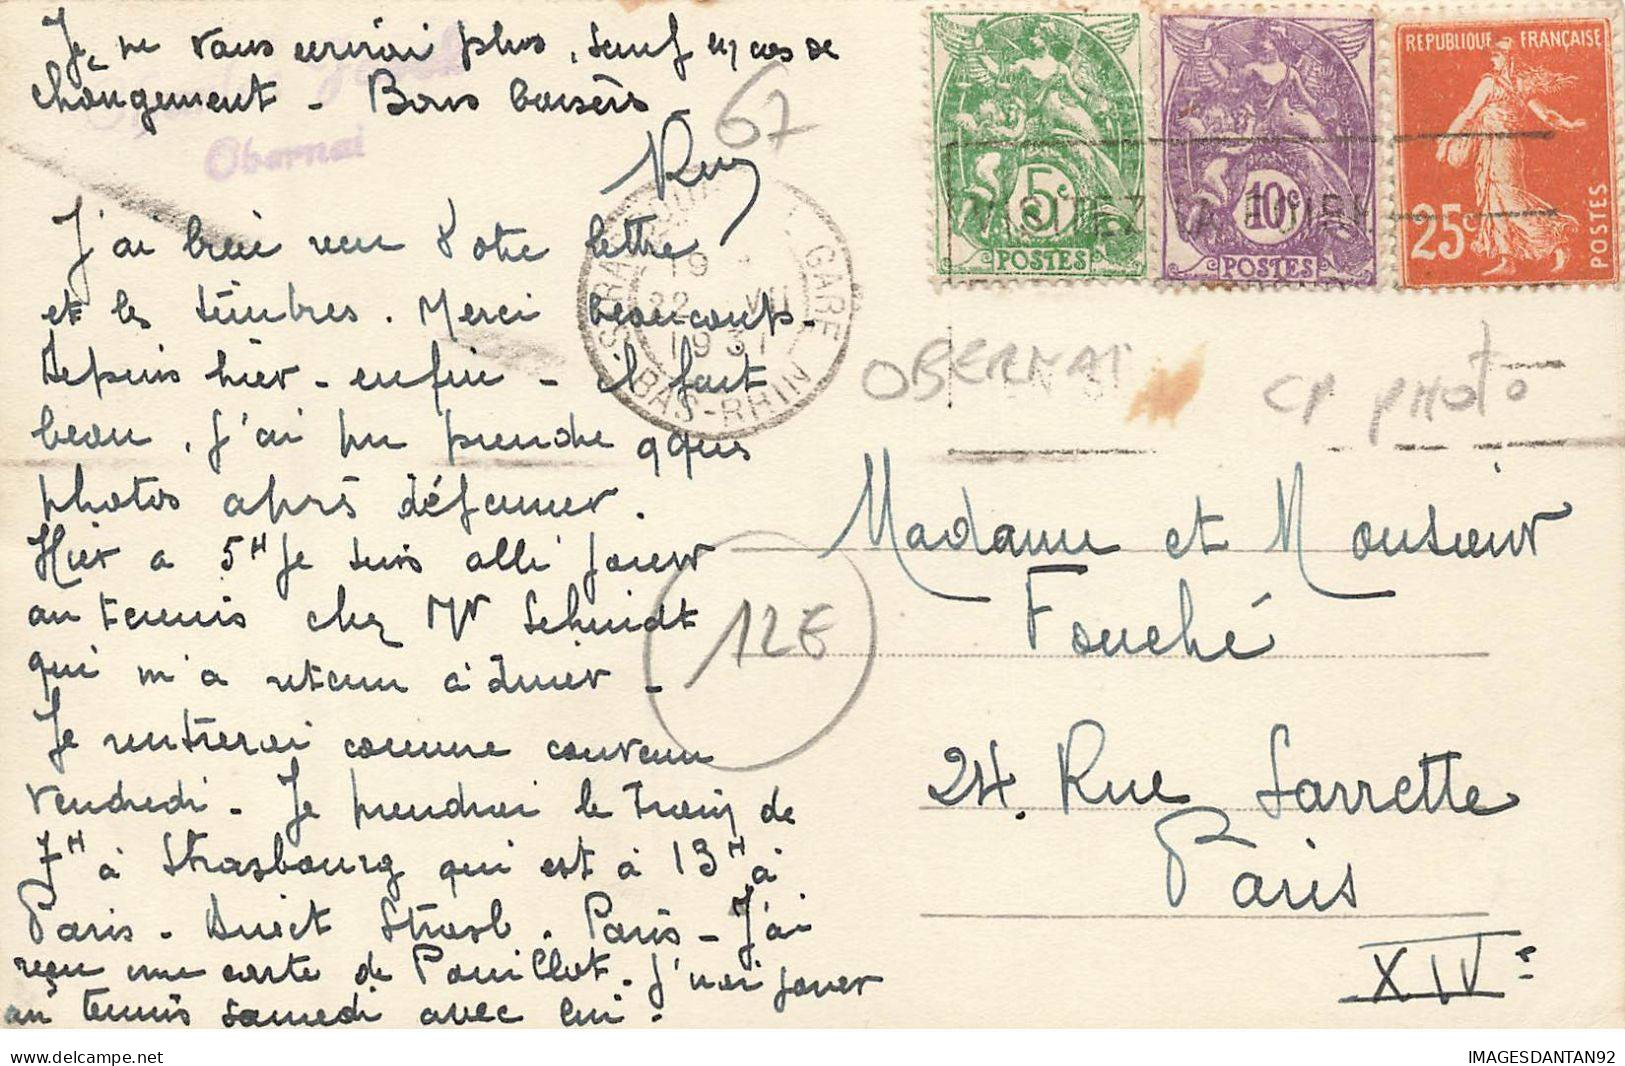 Je ne vous écrirai plus, sauf en cas de
changement - Bons baisers
Obernai
67
J'ai bien reçu Votre lettre
et les timbres. Merci beaucoup.
Depuis hier - enfin - il fait
beau, j'ai pu prendre qques
photos après déjeuner.
Hier à 5H je suis allé jouer
au tennis chez Mr Schmidt
qui m'a retenu à dîner -
Je rentrerai comme convenu
vendredi - Je prendrai le train de
7H à Strasbourg qui est à 13H à
Paris - Direct Strasb. Paris - J'ai
reçu une carte de Pouillot. J'irai jouer
au tennis samedi avec lui.
GARE
19
22 VII
1931
BAS-RHIN
5c
POSTES
10c
POSTES
REPUBLIQUE FRANÇAISE
25c
POSTES
VISITEZ LA
OBERNAI
CP PHOTO
12E
Madame et Monsieur
Fouché
24. Rue Sarrette
Paris
XIVe
IMAGESDANTAN92